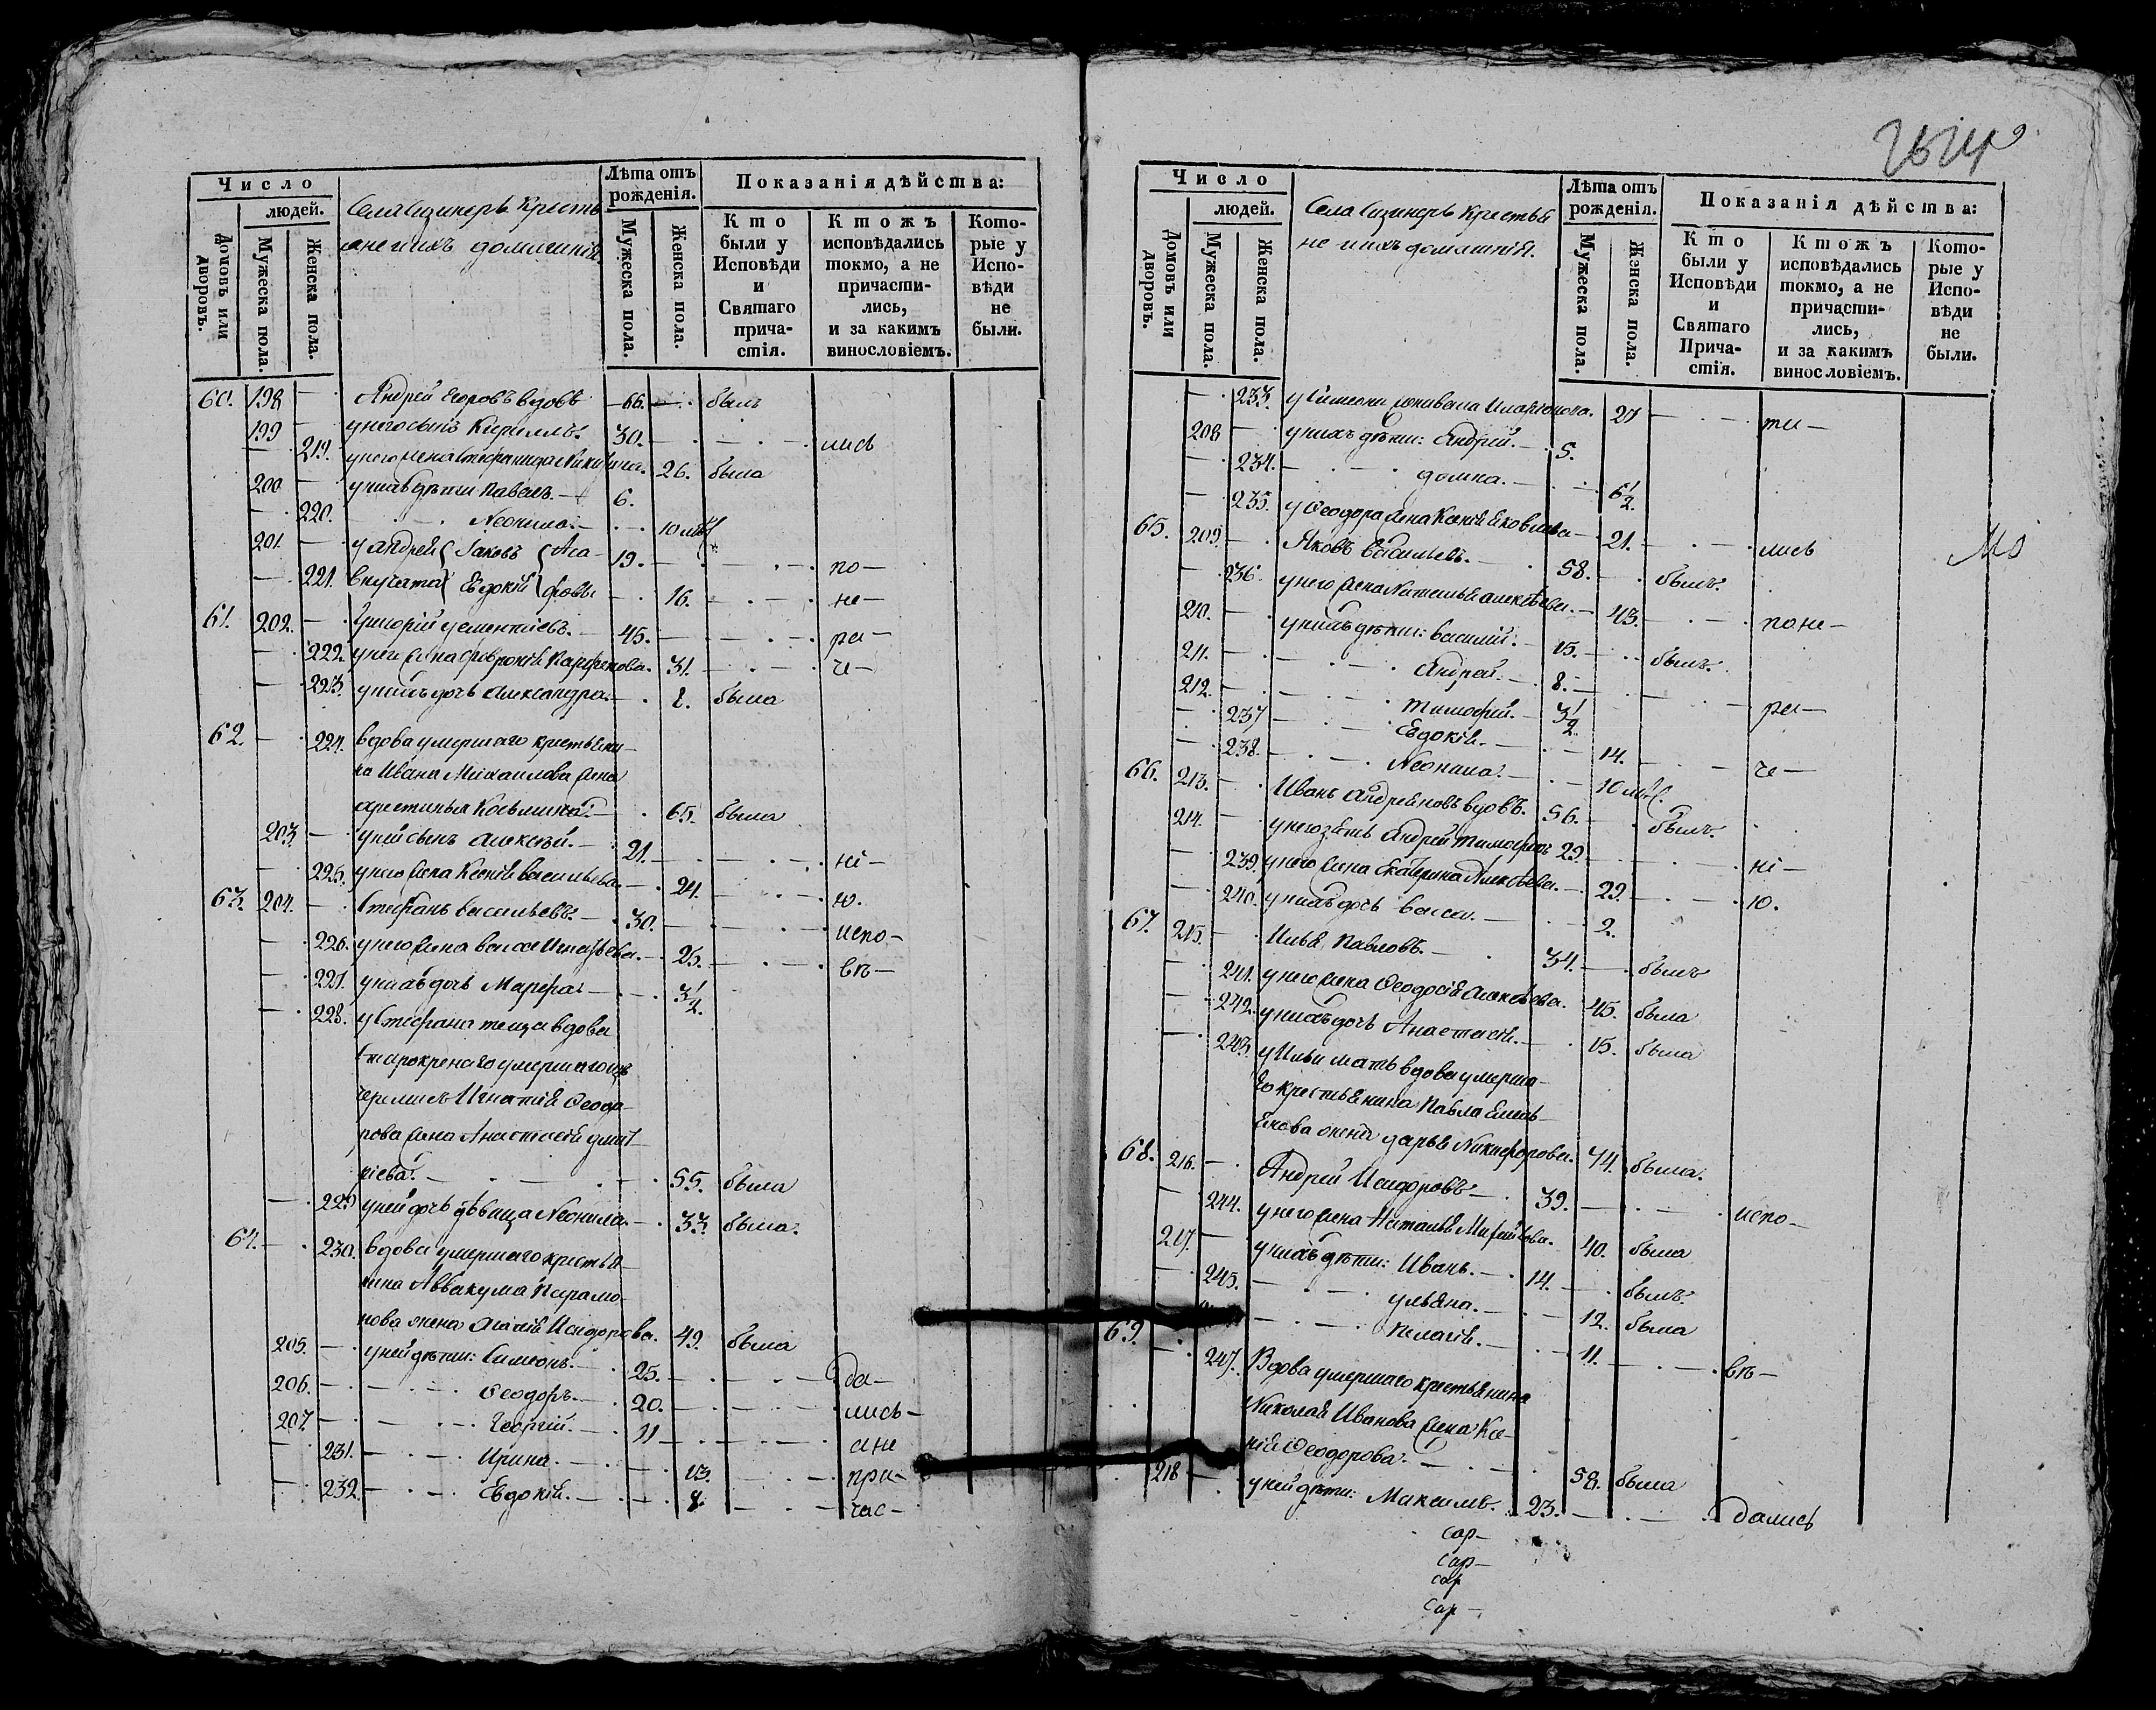 Число
людей.
Домовъ или дворовъ.
Мужеска пола.
Женска пола.
Села Сизнеръ Кресть
яне и ихъ домашнія.
Лѣта отъ рожденія.
Мужеска пола.
Женска пола.
Показанія дѣйства:
Кто были у Исповѣди и Святаго причастія.
Ктожъ исповѣдались токмо, а не причастились, и за какимъ винословіемъ.
Которые у Исповѣди не были.
60. 198 — Андрей Егоровъ вдовъ — 66. — былъ
199 — у него сынъ Кириллъ. 30. — лись
— 219. у него жена Стефанида 26. была
200 — у нихъ дѣти Павелъ. — 6.
— 220. Неонила. — 10 мѣс
201. — у Андрея Іаковъ 19. — по —
— 221. внучата Евдокія 16. — не —
61. 202. — Григорій Дементіевъ. — 45. — ра —
— 222. у него жена Февронія Парфенова. 31. — че —
— 223. у нихъ дочь Александра. — 8. была
62. — 224. вдова умершаго крестьяни
на Ивана Михаилова жена
Христинья Козьмина. — 65. была
203. — у ней сынъ Алексѣй. — 21. — ні —
— 225. у него жена Ксенія Васильева. — 24. — ю.
63. 204. — Стефанъ Васильевъ. — 30. — испо —
— 226. у него жена Васса Игнатьева. — 25. — вѣ —
— 227. у нихъ дочь Марфа. — 3 1/2.
— 228. у Стефана теща вдова
старокрещенаго умершаго изъ
черемисъ Игнатія Феодо
рова жена Анастасія Дмит
ріева. — 55. была
— 229 у ней дочь дѣвица Неонила. — 33. была.
64. — 230. вдова умершаго крестья
нина Аввакума Парамо
нова жена Агафія Исидорова. 49. была
205. — у ней дѣти: Симеонъ. — 25. — да —
206. — Феодоръ. — 20. — лись —
207. — Георгій. — 11 — а не
— 231. — Ирина. — 13. — при —
— 232. — Евдокія. — 8. — час —
Число
людей.
Домовъ или дворовъ.
Мужеска пола.
Женска пола.
Села Сизнеръ Крестья
не и ихъ домашнія.
Лѣта отъ рожденія.
Мужеска пола.
Женска пола.
Показанія дѣйства:
Кто были у Исповѣди и Святаго Причастія.
Ктожъ исповѣдались токмо, а не причастились, и за какимъ винословіемъ.
Которые у Исповѣди не были.
— 233. у Симеона жена 27 — ти —
208 — у нихъ дѣти: Андрей. — 5.
— 234. — Домна. — 6 1/2.
— 235. у Феодора жена Ксенія Яковлева — 21. — лись
65. 209. — Яковъ Васильевъ. — 58. — былъ.
— 236. у него жена Наталья Алексѣева. — 43. — по не —
210. — у нихъ дѣти: Василій. — 15. — былъ.
211. — Андрей. — 8. —
212. — Тимофей. — 3 1/2 — ра —
— 237 — Евдокія. — 14. — че —
— 238. — Неонила. — 10 мѣс.
66. 213. — Иванъ Андреяновъ вдовъ. 56. — былъ.
214. — у него зять Андрей Тимофеевъ 29. — ні —
— 239. у него жена Екатерина Алексѣева. — 29. — ю.
— 240. у нихъ дочь Васса. — 2.
67. 215. — Илья Павловъ. — 34. — былъ
— 241. у него жена Феодосія Алексѣева. 45. была
— 242. у нихъ дочь Анастасія. — 15. была
— 243 у Ильи мать вдова умерша
го крестьянина Павла Емель
янова жена Дарья Никифорова. 74. была.
68. 216. — Андрей Исидоровъ — 39. — испо —
— 244. у него жена Наталья 40. была
217. — у нихъ дѣти: Иванъ. — 14. — былъ.
— 245. — Ульяна. — 12. была
— Пелагія. — 11. — вѣ —
69. — 247. Вдова умершаго крестьянина
Николая Иванова жена Ксе
нія Феодорова. — 58. была
218 — у ней дѣти: Максимъ. 23. — дались
сар —
сар —
сар
сар —